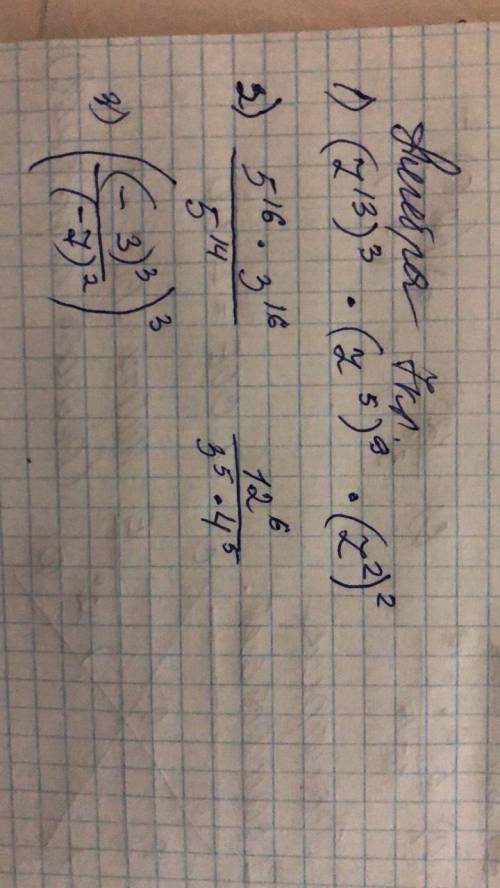 Алгебра 7 кл.
1) (z¹³)³ · (z⁵)⁹ · (z²)²
2) (5¹⁶ · 3¹⁶) / 5¹⁴    12⁶ / (3⁵ · 4⁵)
3) ((-3)³ / (-7)²)³